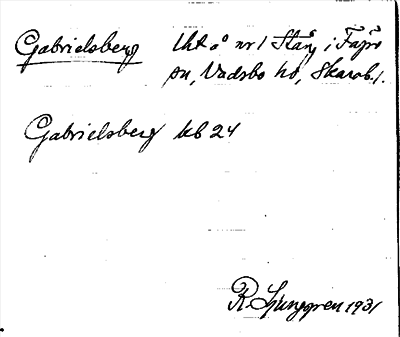 Gabrielsberg lht å nr 1 Stång i Fägre
sn, Vadsbo hd, Skarab. l.
Gabrielsberg kb 24
R. Ljunggren 1931